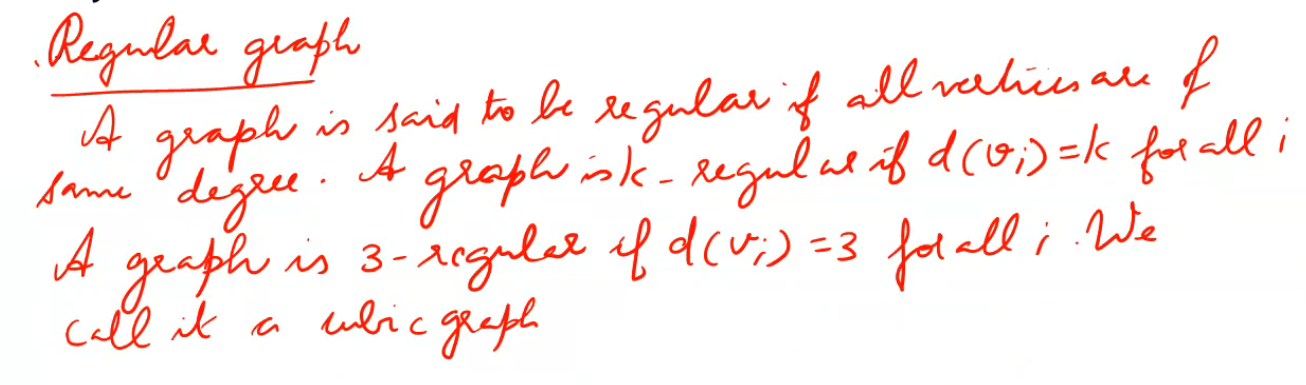 Regular graph
A graph is said to be regular if all vertices are of
same degree. A graph is k-regular if d(vi)=k for all i
A graph is 3-regular if d(vi)=3 for all i. We
call it a cubic graph